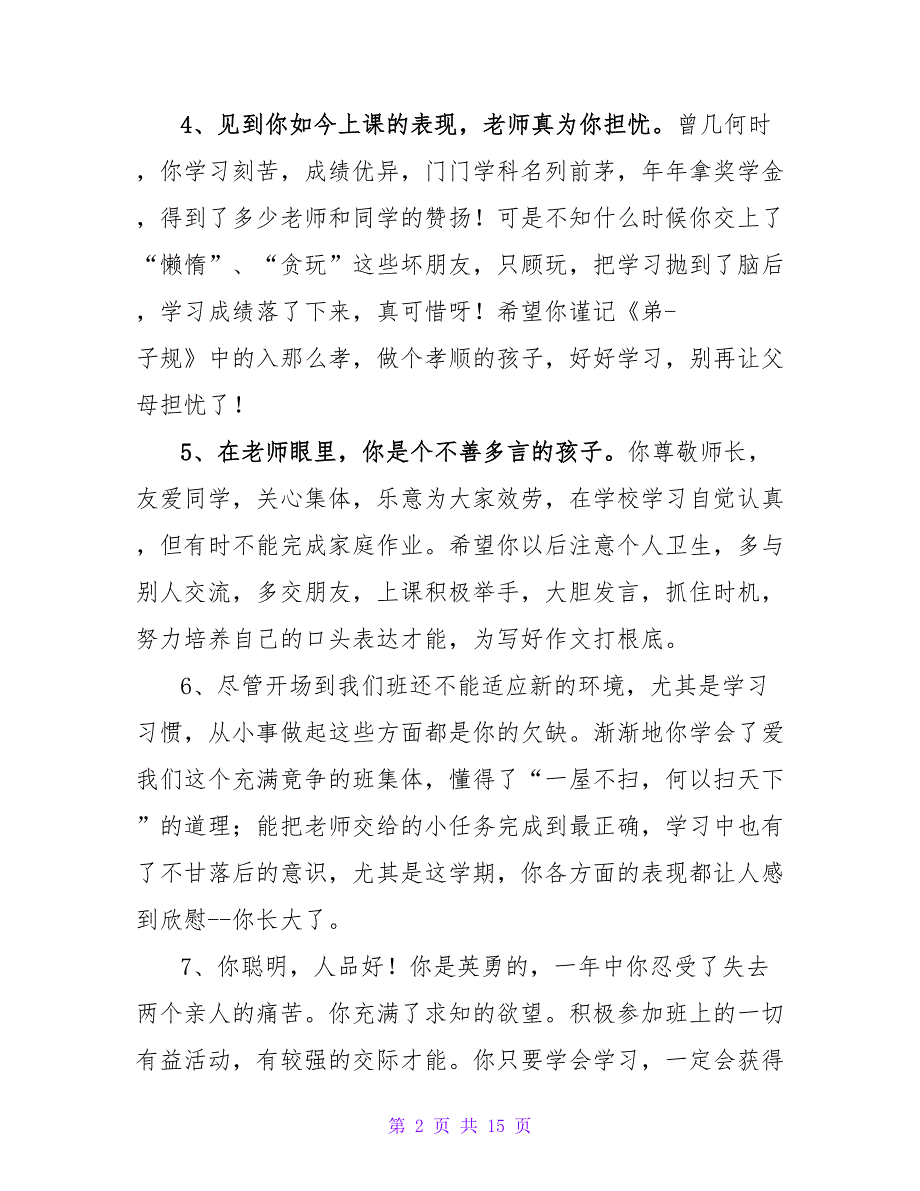 4、见到你如今上课的表现，老师真为你担忧。曾几何时
，你学习刻苦，成绩优异，门门学科名列前茅，年年拿奖学金
，得到了多少老师和同学的赞扬！可是不知什么时候你交上了
“懒惰”、“贪玩”这些坏朋友，只顾玩，把学习抛到了脑后
，学习成绩落了下来，真可惜呀！希望你谨记《弟-
子规》中的入那么孝，做个孝顺的孩子，好好学习，别再让父
母担忧了！
5、在老师眼里，你是个不善多言的孩子。你尊敬师长，
友爱同学，关心集体，乐意为大家效劳，在学校学习自觉认真
，但有时不能完成家庭作业。希望你以后注意个人卫生，多与
别人交流，多交朋友，上课积极举手，大胆发言，抓住时机，
努力培养自己的口头表达才能，为写好作文打根底。
6、尽管开场到我们班还不能适应新的环境，尤其是学习
习惯，从小事做起这些方面都是你的欠缺。渐渐地你学会了爱
我们这个充满竟争的班集体，懂得了“一屋不扫，何以扫天下
”的道理；能把老师交给的小任务完成到最正确，学习中也有
了不甘落后的意识，尤其是这学期，你各方面的表现都让人感
到欣慰--你长大了。
7、你聪明，人品好！你是英勇的，一年中你忍受了失去
两个亲人的痛苦。你充满了求知的欲望。积极参加班上的一切
有益活动，有较强的交际才能。你只要学会学习，一定会获得
第 2 页 共 15 页